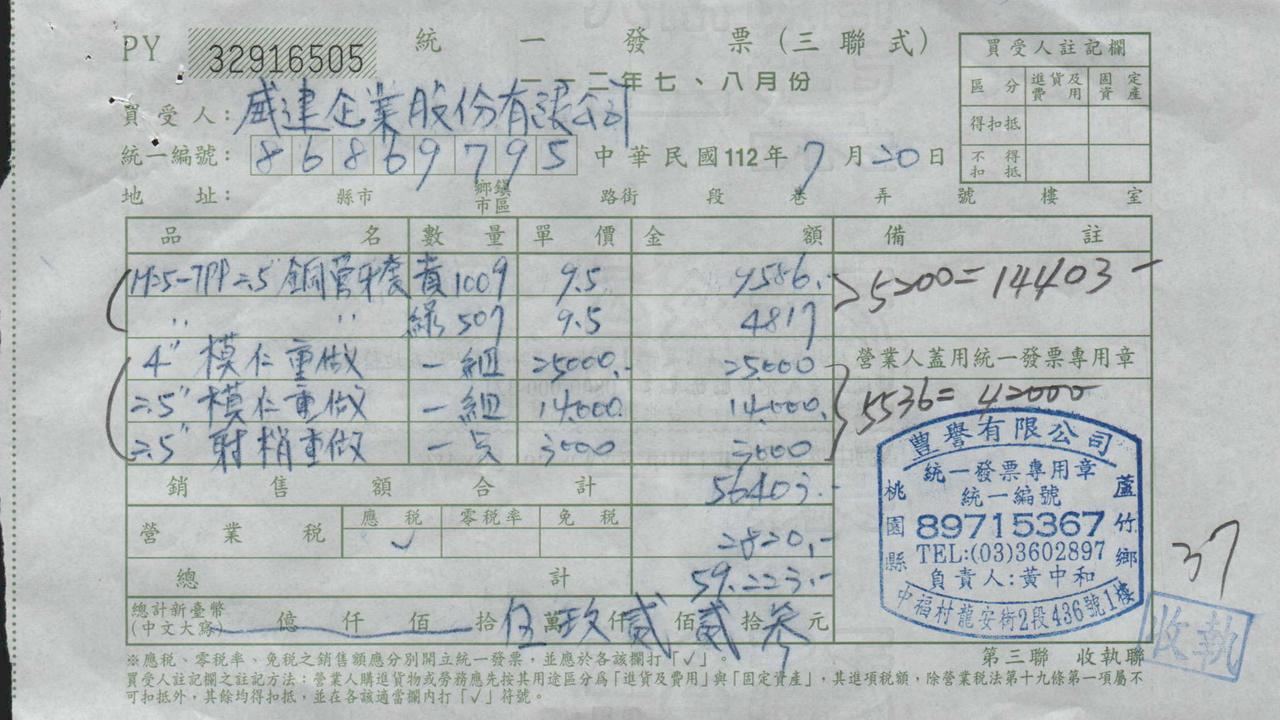 PY 32916505 統一發票(三聯式)
一一二年七、八月份
買受人註記欄
區分 進貨及費用 固定資產
得扣抵
不得扣抵
買受人: 威建企業股份有限公司
統一編號: 86869795 中華民國112年7月20日
地址: 縣市 鄉鎮市區 路街 段 巷 弄 號 樓 室
品名 數量 單價 金額 備註
H-5-7PP 2.5" 銅管牙套 黃1009 9.5 9586.
" " 綠507 9.5 4817
5200=14403-
4" 模仁重做 一組 25000.- 25000
營業人蓋用統一發票專用章
2.5" 模仁重做 一組 14000. 14000.
5536=42000
2.5" 射梢重做 一支 3000 3000
銷售額合計 56403.-
營業稅 應稅 ✓ 零稅率 免稅 2820.-
總計 59.223.-
總計新臺幣(中文大寫) 億 仟 佰 拾 伍 萬 玖 仟 貳 佰 貳 拾 參 元
豐譽有限公司
統一發票專用章
統一編號
89715367
TEL:(03)3602897
負責人:黃中和
桃園縣 蘆竹鄉
中福村龍安街2段436號1樓
37
收執
※應稅、零稅率、免稅之銷售額應分別開立統一發票,並應於各該欄打「✓」。
第三聯 收執聯
買受人註記欄之註記方法:營業人購進貨物或勞務應先按其用途區分為「進貨及費用」與「固定資產」,其進項稅額,除營業稅法第十九條第一項屬不
可扣抵外,其餘均得扣抵,並在各該適當欄內打「✓」符號。